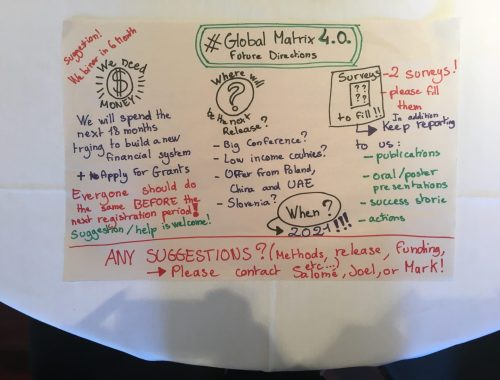 # Global Matrix 4.0.
Future Directions
Suggestion!
Webinar in 6 Month
We need
$
MONEY!
We will spend the
next 18 months
trying to build a new
financial system
+ Apply for Grants
Everyone should do
the same BEFORE the
next registration period!
Suggestion/help is welcome!
Where will
be the next
Release?
?
- Big Conference?
- Low income countries?
- Offer from Poland,
China and UAE
- Slovenia?
When?
→ 2021!!!
Surveys
??
??
to fill!!
- 2 surveys!
- please fill
them
In addition
Keep reporting
to us:
- publications
- oral/poster
presentations
- success storie
- actions
ANY SUGGESTIONS? (Methods, release, funding,
etc...)
→ Please contact Salomé, Joel, or Mark!